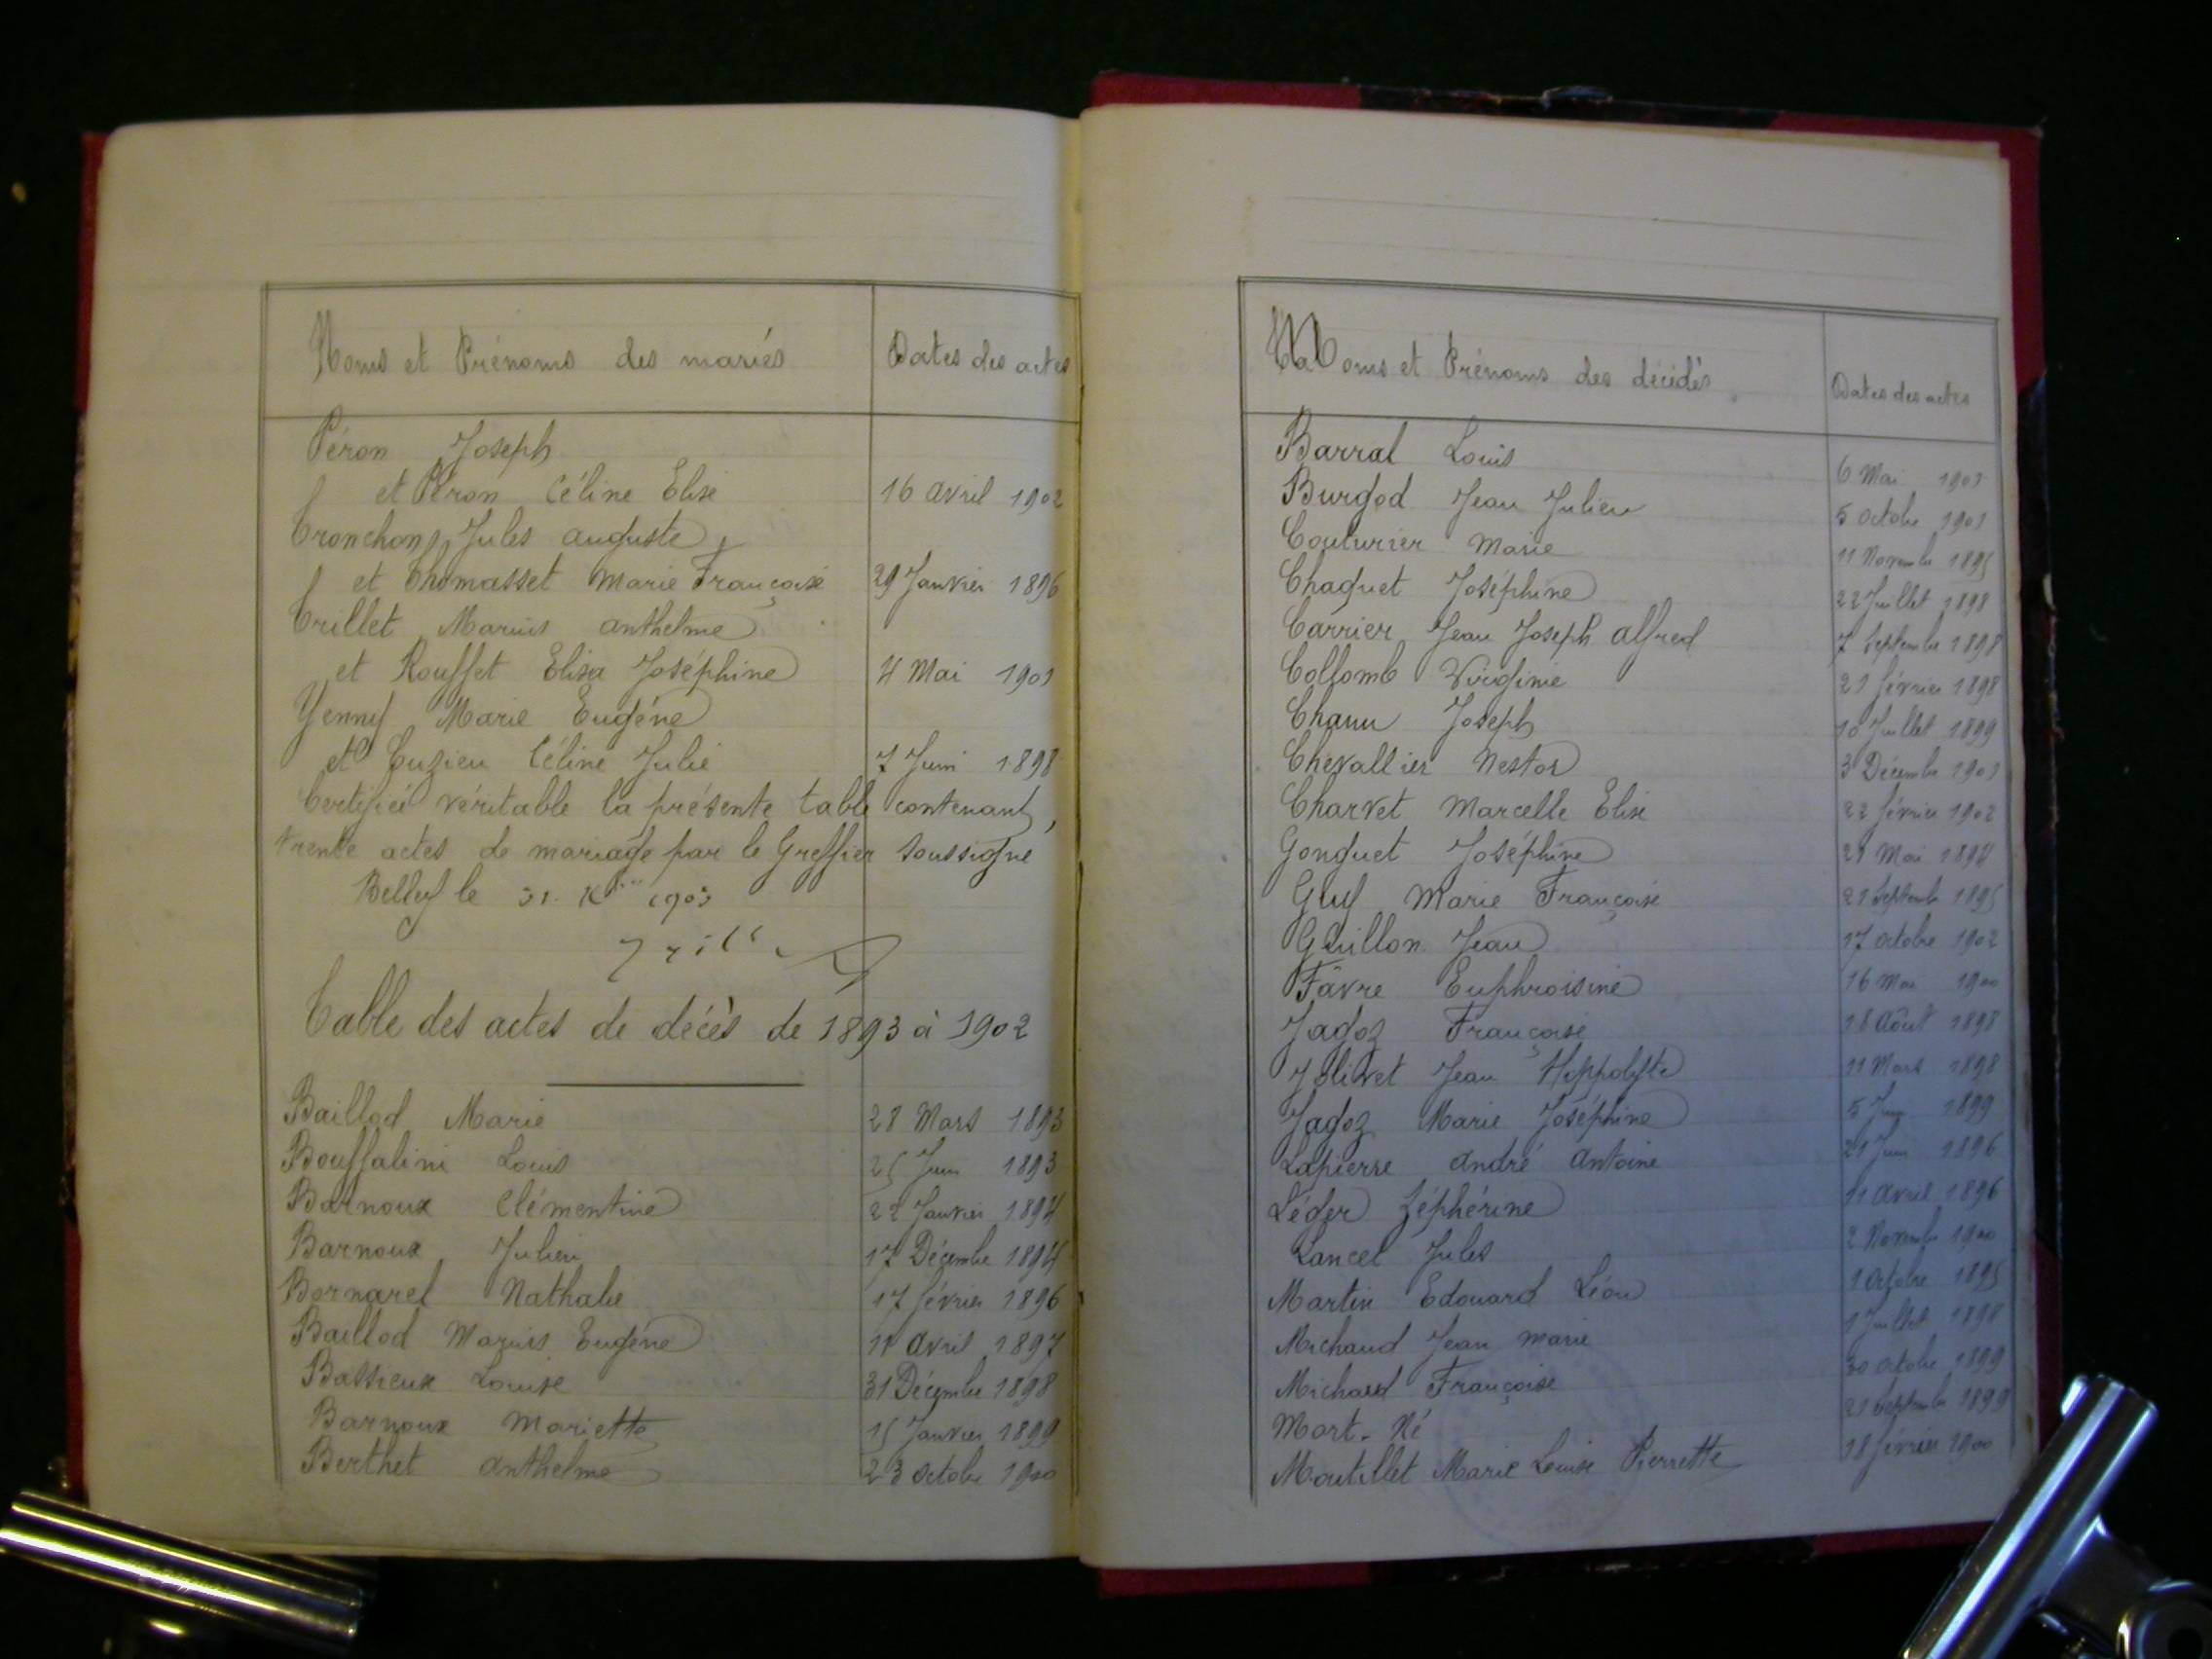 Noms et Prénoms des mariés Dates des actes
Péron Joseph
et Péron Céline Elise 16 avril 1902
Tronchon, Jules auguste
et Thomasset Marie Françoise 29 Janvier 1896
Trillet Marius anthelme
et Rouffet Elisa Joséphine 4 Mai 1901
Yenny Marie Eugène
et Cuzieu Céline Julie 7 Juin 1898
Certifiée véritable la présente table contenant
trente actes de mariage par le Greffier soussigné
Belley le 31. Xbre 1903
Table des actes de décès de 1893 à 1902
Baillod Marie 28 Mars 1893
Bouffalini Louis 25 Juin 1893
Barnoux Clémentine 22 Janvier 1894
Barnoux Julien 17 Décembre 1894
Bornarel Nathalie 17 février 1896
Baillod Marius Eugène 11 avril 1897
Bassieux Louise 31 Décembre 1898
Barnoux Mariette 15 Janvier 1899
Berthet anthelme 23 octobre 1900
Noms et Prénoms des décédés Dates des actes
Barral Louis 6 Mai 1901
Burgod Jean Julien 5 octobre 1901
Couturier Marie 11 Novembre 1895
Chaquet Joséphine 22 Juillet 1898
Carrier Jean Joseph alfred 7 Septembre 1898
Collomb Virginie 21 février 1898
Chanu Joseph 10 Juillet 1899
Chevallier Nestor 3 Décembre 1901
Charvet Marcelle Elise 22 février 1902
Gonguet Joséphine 21 Mai 1894
Guy Marie Françoise 21 Septembre 1895
Guillon Jean 17 octobre 1902
Favre Euphroisine 16 Mai 1900
Jagoz Françoise 18 Août 1898
Jolivet Jean Hippolyte 11 Mars 1898
Jagoz Marie Joséphine 5 Juin 1899
Lapierre andré antoine 21 Juin 1896
Léger Zéphérine 11 avril 1896
Lancel Jules 2 Novembre 1900
Martin Edouard Léon 1 octobre 1895
Michaud Jean marie 1 Juillet 1898
Michaud Françoise 30 octobre 1899
Mort-Né 21 Septembre 1899
Moutillet Marie Louise Pierrette 18 février 1900